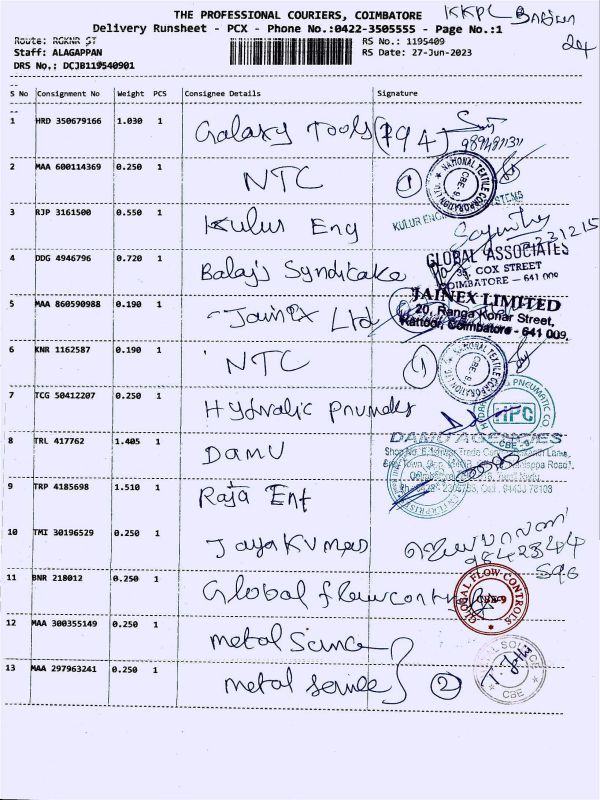 THE PROFESSIONAL COURIERS, COIMBATORE
KKPL
Delivery Runsheet - PCX - Phone No.:0422-3505555 - Page No.:1
Route: RGKNR ST
RS No.: 1195409
24
Staff: ALAGAPPAN
RS Date: 27-Jun-2023
DRS No.: DCJB119540901
S No Consignment No Weight PCS Consignee Details Signature
1 HRD 350679166 1.030 1 Galaxy Tools (794)
2 MAA 600114369 0.250 1 NTC 1
NATIONAL TEXTILE CORPORATION LTD. CBE-9
3 RJP 3161500 0.550 1 Kulur Eng
KULUR
4 DDG 4946796 0.720 1 Balaji Syndicate
GLOBAL ASSOCIATES
35, COX STREET
COIMBATORE - 641 009
5 MAA 860590988 0.190 1 Jainex Ltd
JAINEX LIMITED
20, Ranga Konar Street,
Kattoor, Coimbatore - 641 009.
6 KNR 1162587 0.190 1 NTC 1
NATIONAL TEXTILE CORPORATION LTD. CBE-9
7 TCG 50412207 0.250 1 Hydralic
PNEUMATIC CO
HPC
CBE - 9
8 TRL 417762 1.405 1 DAMU
DAMU AGENCIES
9 TRP 4185698 1.510 1 Raja Ent
10 TMI 30196529 0.250 1 Jayakumar
11 BNR 218012 0.250 1 Global flowcontrols
GLOBAL FLOW-CONTROLS
CBE-9
12 MAA 300355149 0.250 1 metal Science
13 MAA 297963241 0.250 1 metal service 2
CBE